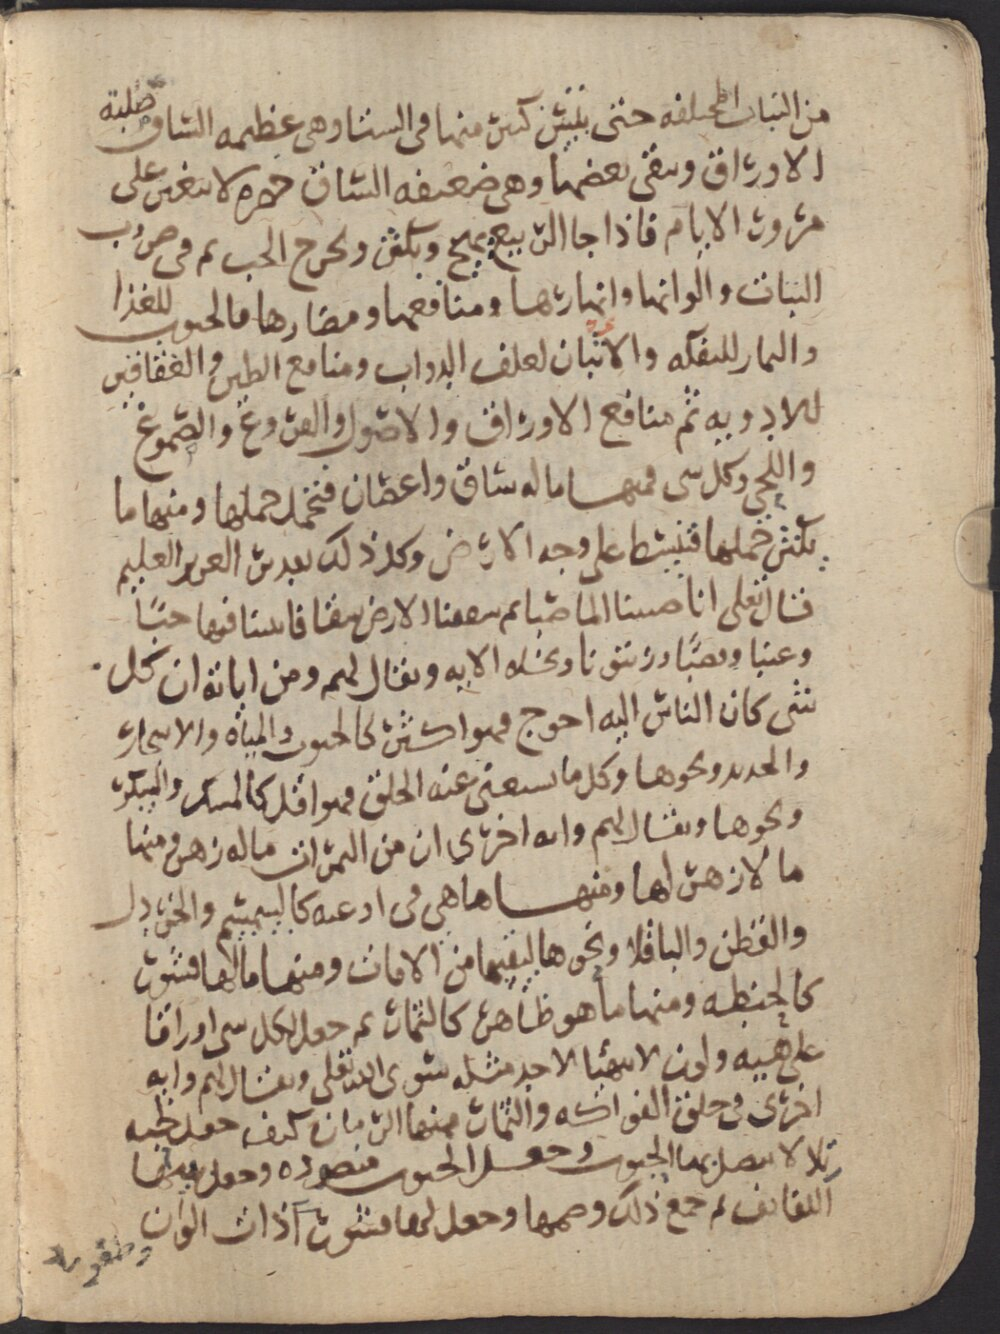 من النبات المختلفه حتى ييبس كثير منها فى الستا وهى عظيمه الساق صلبة
الاوراق ويبقى بعضها وهى ضعيفه الساق خمره لا يتغير على
مرور الايام فاذا جا الربيع يهيج ويكثر ويخرج الحب ثم فى ضروب
النبات والوانها وانهارها ومنافعها ومضارها فالحبوب للغذا
والثمار للتفكه والاتبان لعلف الدواب ومنافع الطير والعقاقير
للادويه ثم منافع الاوراق والاصول والفروع والصموغ
واللحى وكل شى فمنها ما له ساق واغصان فتحمل حملها ومنها ما
يكثر حملها فتبسط على وجه الارض وكل ذلك بقدير العزيز العليم
قال تعلى انا صببنا الما صبا ثم شققنا الارض شقا فانبتنا فيها حبًا
وعنبا وقضبًا وزيتونا ونخلا الايه ويقال لهم ومن اياته ان كل
شى كان الناس اليه احوج فهو اكثر كالحبوب والمياه والاشجار
والحديد ونحوها وكل ما يستغنى عنه الخلق فهو اقل كالمسك والسكر
ونحوها ويقال لهم وايه اخرى ان من الثمرات ما له زهر ومنها
ما لا زهر لها ومنها ما هى فى اوعيه كالسمسم والخردل
والقطن والباقلا ونحوها ليقيها من الافات ومنها ما لها قشور
كالحنطه ومنها ما هو ظاهر كالثمار ثم جعل لكل شى اوراقا
على هييه ولون لا يتهيا لاحد مثله سوى الله تعلى ويقال لهم وايه
اخرى فى خلق الفواكه والثمار فمنها الرمان كيف جعل حبه
لئلا لا يتصل بها الحبوب وجعل الحبوب منضوده وجعل بينها
اللفايف ثم جمع ذلك وضمها وجعل لها قشورا ذات الوان